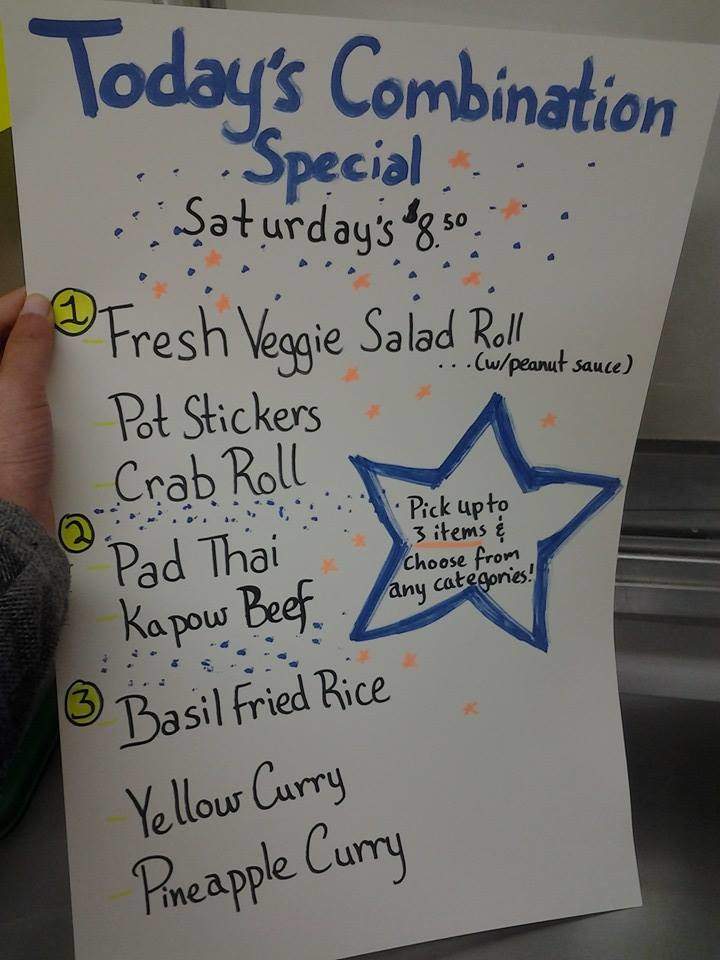 Today's Combination
Special
Saturday's $8.50
1 Fresh Veggie Salad Roll
...(w/peanut sauce)
Pot Stickers
Crab Roll
Pick up to
3 items &
Choose from
any categories!
2 Pad Thai
Kapow Beef
3 Basil Fried Rice
Yellow Curry
Pineapple Curry